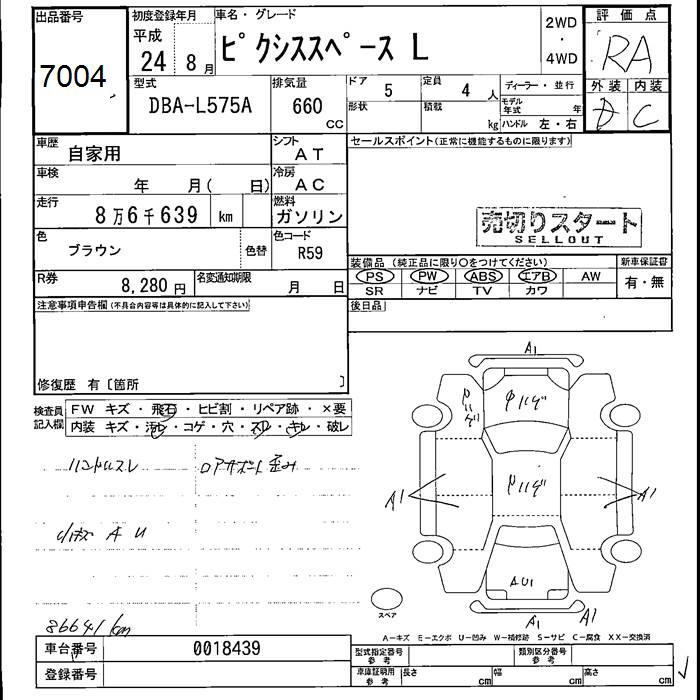 出品番号
7004
初度登録年月
平成
24年 8月
車名・グレード
ピクシススペース L
2WD
・
4WD
評価点
RA
外装 内装
D C
型式
DBA-L575A
排気量
660
CC
ドア 5
定員 4 人
形状
積載 kg
ディーラー・並行
モデル年式 年
ハンドル 左・右
車歴 自家用
シフト AT
車検 年 月( 日)
冷房 AC
走行 8万6千639 km
燃料 ガソリン
色 ブラウン
色替
色コード R59
R券 8,280 円
名変通知期限 月 日
セールスポイント(正常に機能するものに限ります)
売切りスタート
SELLOUT
装備品(純正品に限り○をつけてください)
PS PW ABS エアB AW
SR ナビ TV カワ
新車保証書
有・無
後日品
注意事項申告欄(不具合内容等は具体的に記入して下さい)
修復歴 有〔箇所 〕
検査員記入欄
FW キズ・飛石・ヒビ割・リペア跡・×要
内装 キズ・汚レ・コゲ・穴・スレ・キレ・破レ
ハンドルスレ ロアサポート歪み
小キズ A U
86641km
A1
ハゲ
ハゲ
ハゲ
A1
A1
AU1
A1
A1
スペア
A-キズ E-エクボ U-凹み W-補修跡 S-サビ C-腐食 XX-交換済
車台番号 0018439
登録番号
型式指定番号 参考
類別区分番号 参考
車庫証明用 参考
長さ cm 幅 cm 高さ cm